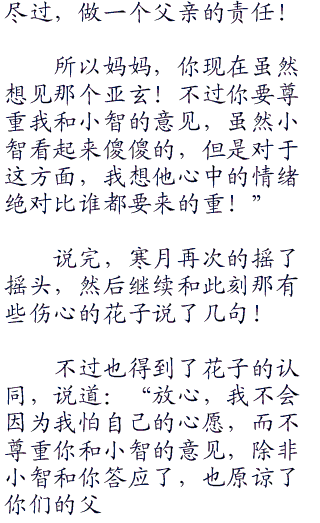 尽过，做一个父亲的责任！
所以妈妈，你现在虽然
想见那个亚玄！不过你要尊
重我和小智的意见，虽然小
智看起来傻傻的，但是对于
这方面，我想他心中的情绪
绝对比谁都要来的重！”
说完，寒月再次的摇了
摇头，然后继续和此刻那有
些伤心的花子说了几句！
不过也得到了花子的认
同，说道：“放心，我不会
因为我怕自己的心愿，而不
尊重你和小智的意见，除非
小智和你答应了，也原谅了
你们的父